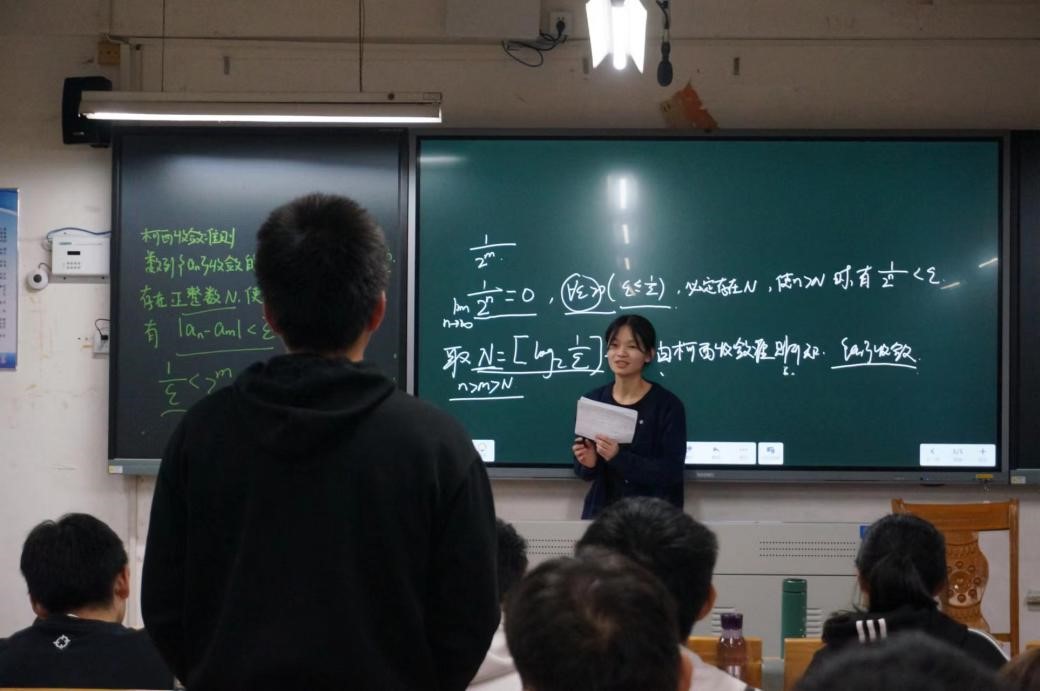 柯西收敛准则
数列{aₙ}收敛的
存在正整数N,使
有 |aₙ-aₘ|<ε
1/ε<2^m
1/2^m.
lim n→∞ 1/2^n=0, ∀ε>0(ε≤1/2), 必定存在N,使n>N时,有 1/2^n<ε.
取N=[log₂ 1/ε] 由柯西收敛准则可知. {aₙ}收敛.
n>m>N